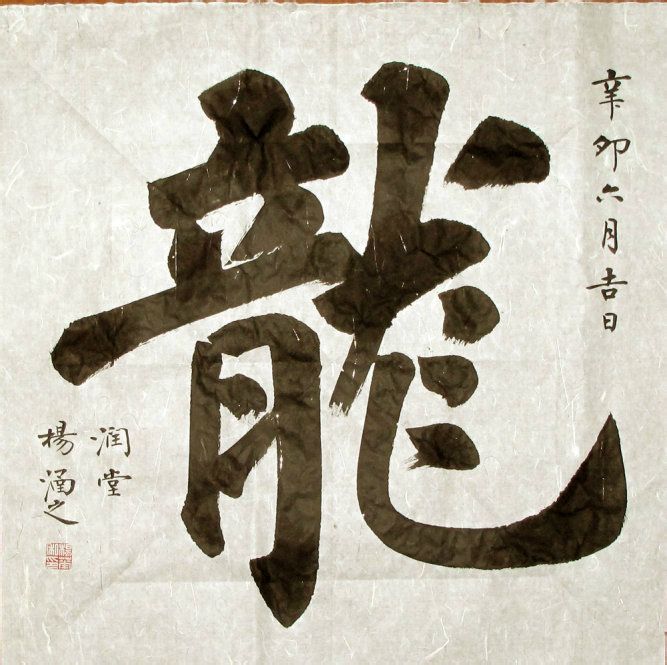 辛卯六月吉日
龍
润堂
楊涵之